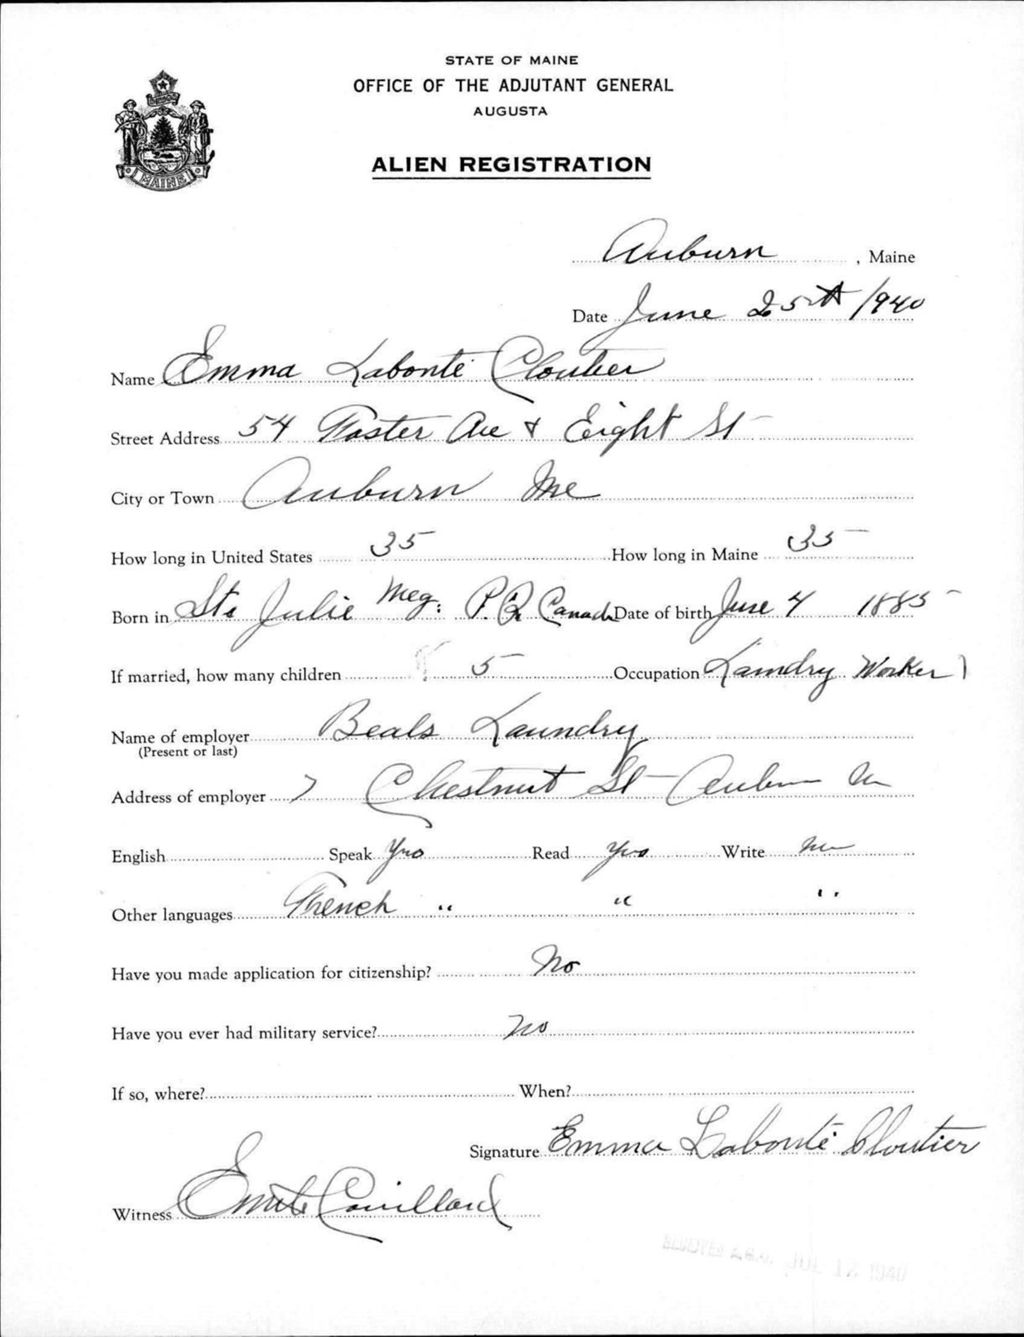 STATE OF MAINE
OFFICE OF THE ADJUTANT GENERAL
AUGUSTA
MAINE
ALIEN REGISTRATION
Auburn, Maine
Date June 25th 1940
Name Emma Labonté Cloutier
Street Address 54 Foster Ave & Eight St
City or Town Auburn Me
How long in United States 35 How long in Maine 35
Born in Ste Julie Meg: P.Q. Canada Date of birth June 4 1885
If married, how many children 5 Occupation Laundry Worker
Name of employer Beals Laundry
(Present or last)
Address of employer 7 Chestnut St Auburn
English Speak Yes Read Yes Write
Other languages French " " "
Have you made application for citizenship? No
Have you ever had military service? No
If so, where? When?
Signature Emma Labonté Cloutier
Witness Couillard
JUL 12 1940